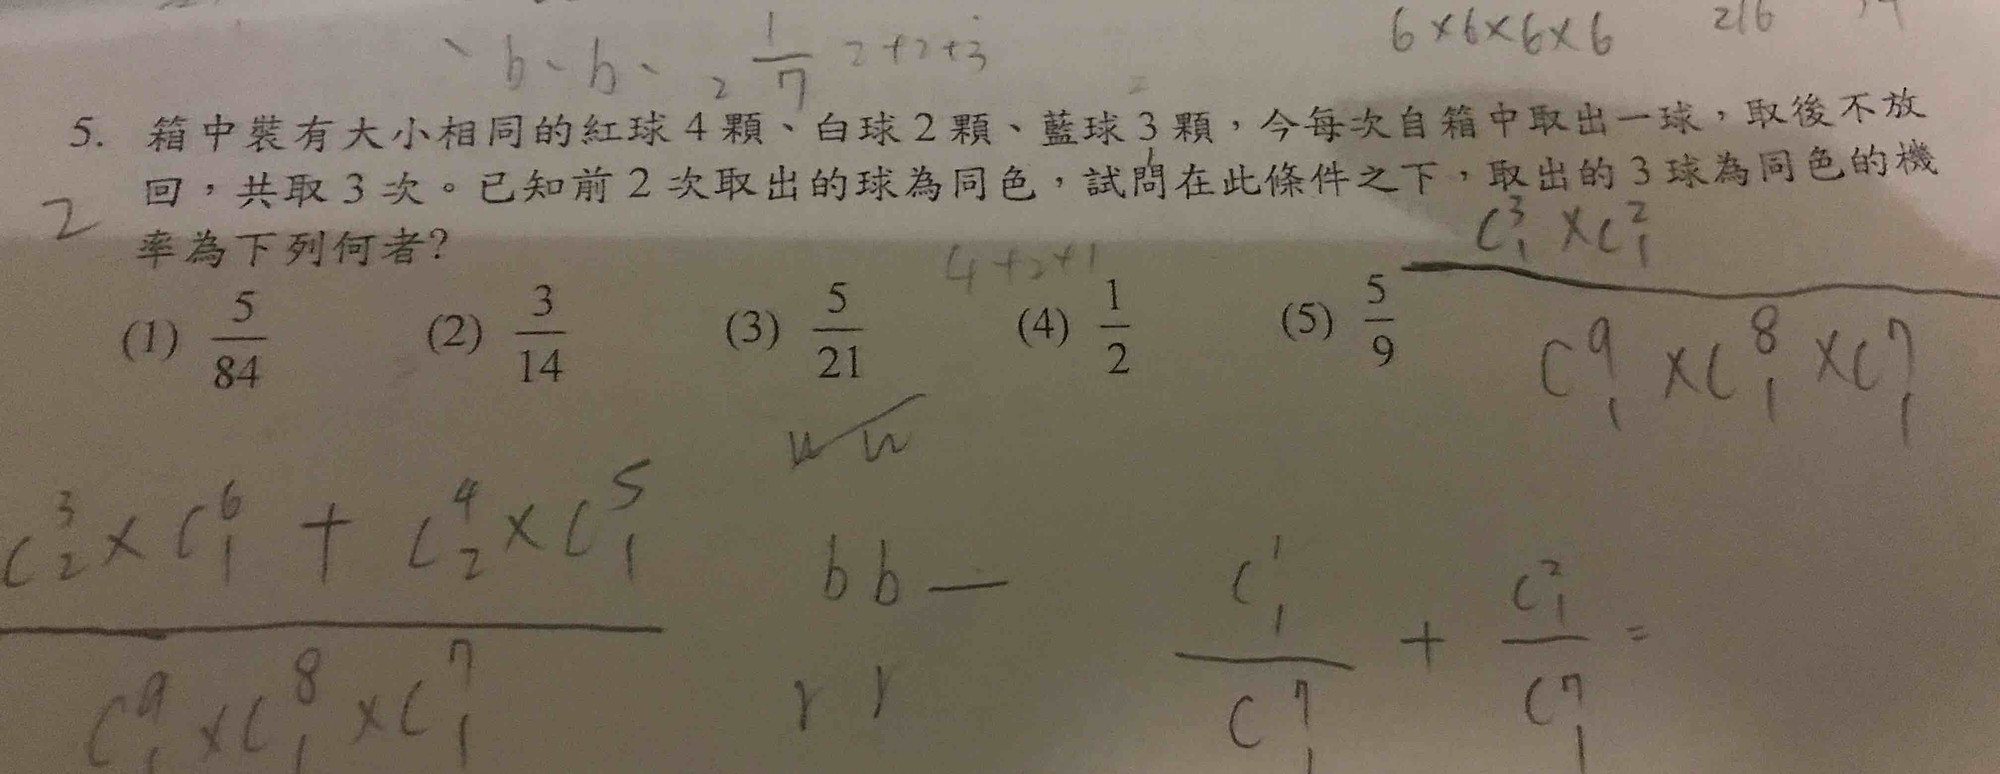 、b、b、 2 1/7 2+2+3
6×6×6×6 216
5. 箱中裝有大小相同的紅球4顆、白球2顆、藍球3顆，今每次自箱中取出一球，取後不放
回，共取3次。已知前2次取出的球為同色，試問在此條件之下，取出的3球為同色的機
2
率為下列何者?
4+2+1
(1) 5/84 (2) 3/14 (3) 5/21 (4) 1/2 (5) 5/9
C³₁×C²₁ / C⁹₁×C⁸₁×C⁷₁
C³₂×C⁶₁+C⁴₂×C⁵₁ / C⁹₁×C⁸₁×C⁷₁
b b —
r r
C¹₁/C⁷₁ + C²₁/C⁷₁ =